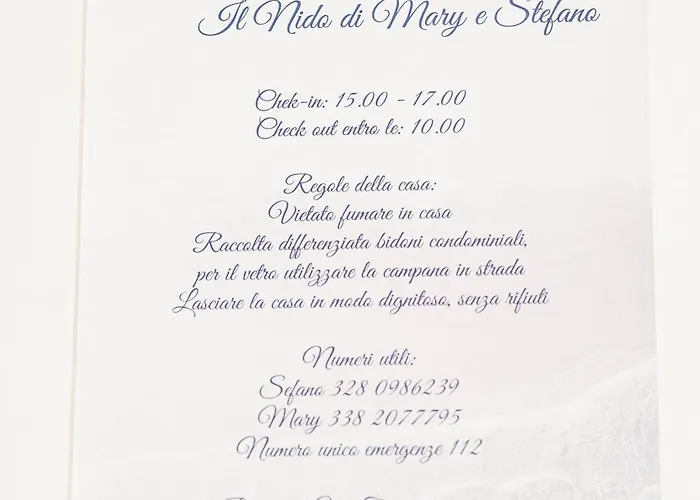 Il Nido di Mary e Stefano
Chek-in: 15.00 - 17.00
Check out entro le: 10.00
Regole della casa:
Vietato fumare in casa
Raccolta differenziata bidoni condominiali,
per il vetro utilizzare la campana in strada
Lasciare la casa in modo dignitoso, senza rifiuti
Numeri utili:
Sefano 328 0986239
Mary 338 2077795
Numero unico emergenze 112